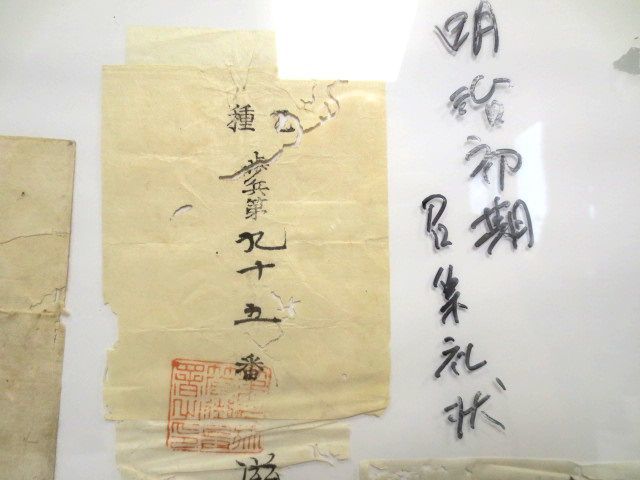 明治初期
召集礼状
種
歩兵第九十五番
滋